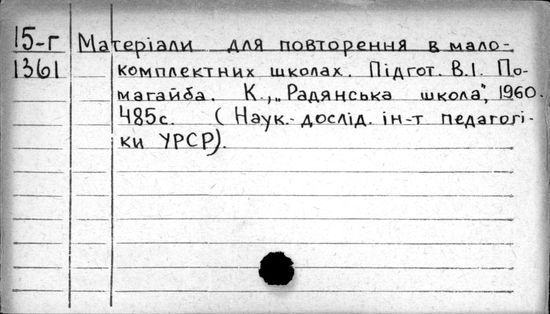 15-г Матеріали для повторення в мало-
1361 комплектних школах. Підгот. В.І. По-
магайба. К., „Радянська школа", 1960.
485с. (Наук.-дослід. ін-т педагогі-
ки УРСР).